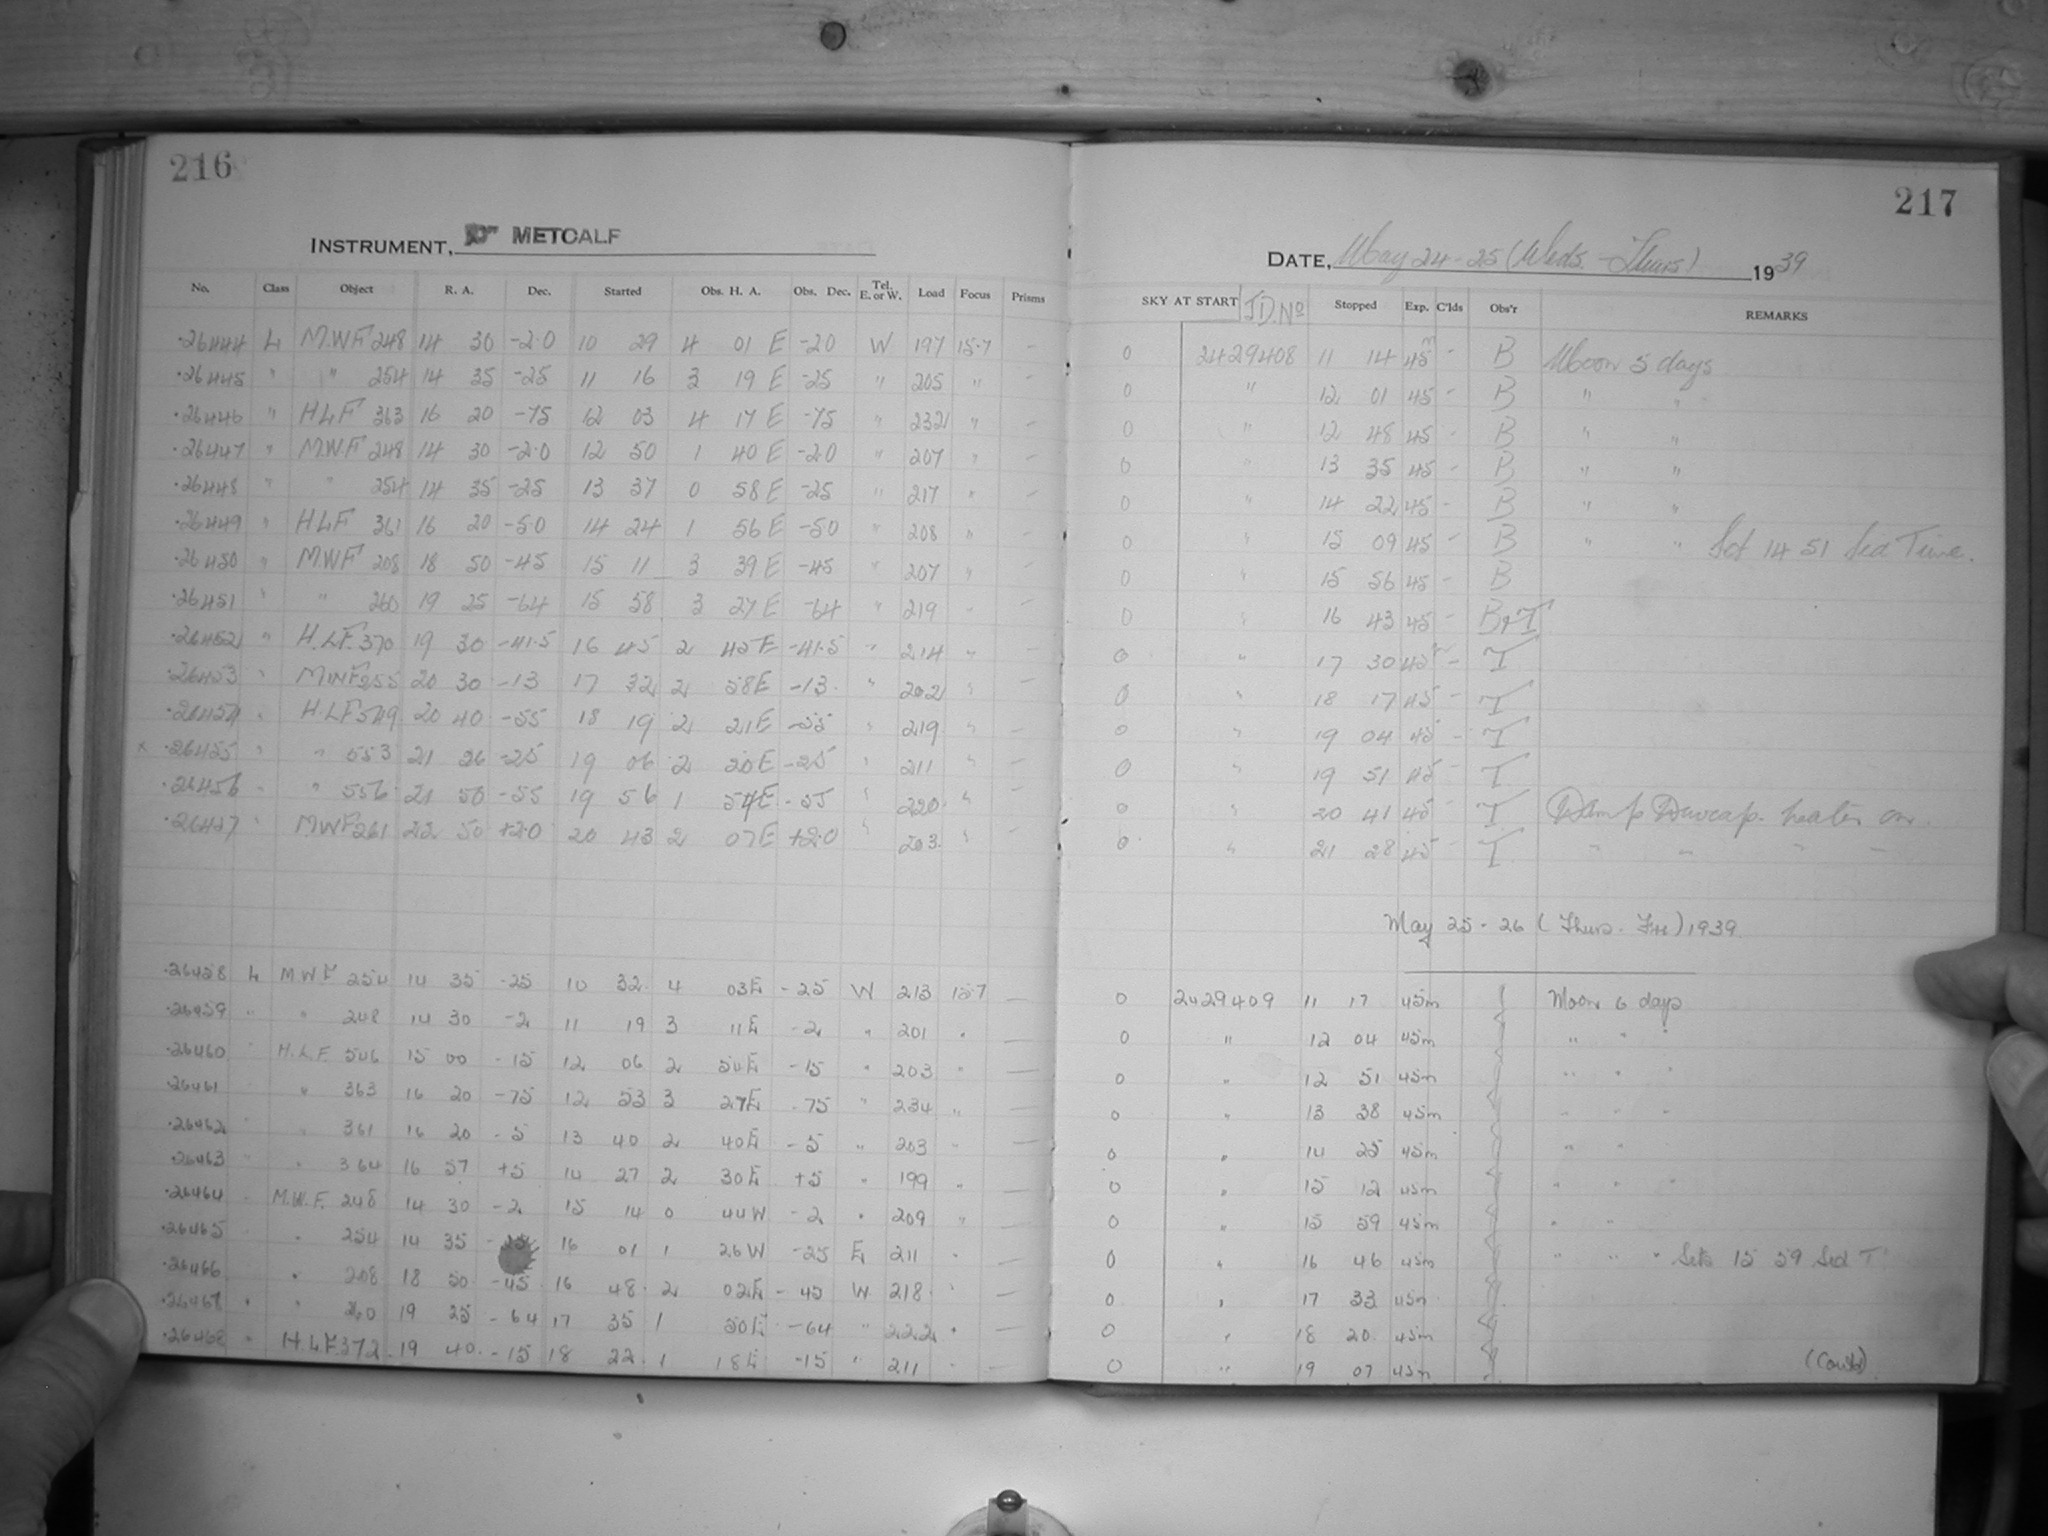 216
INSTRUMENT, 10" METCALF
No. Class Object R. A. Dec. Started Obs. H. A. Obs. Dec. Tel. E. or W. Load Focus Prisms
26444 L M.W.F 248 14 30 -2.0 10 29 4 01 E -2.0 W 197 15.7 -
26445 " " 254 14 35 -25 11 16 3 19 E -25 " 205 " -
26446 " H.L.F 363 16 20 -75 12 03 4 17 E -75 " 232 " -
26447 " M.W.F 248 14 30 -2.0 12 50 1 40 E -2.0 " 207 " -
26448 " " 254 14 35 -25 13 37 0 58 E -25 " 217 " -
26449 " H.L.F 361 16 20 -5.0 14 24 1 56 E -5.0 " 208 " -
26450 " M.W.F 208 18 50 -45 15 11 3 39 E -45 " 207 " -
26451 " " 260 19 25 -64 15 58 3 27 E -64 " 219 " -
26452 " H.L.F. 370 19 30 -41.5 16 45 2 45 E -41.5 " 214 " -
26453 " M.W.F 255 20 30 -13 17 32 2 58 E -13 " 202 " -
26454 " H.L.F 549 20 40 -55 18 19 2 21 E -55 " 219 " -
x 26455 " " 553 21 26 -25 19 06 2 20 E -25 " 211 " -
26456 " " 556 21 50 -55 19 56 1 54 E -55 " 220 " -
26457 " M.W.F 261 22 50 +2.0 20 43 2 07 E +2.0 " 203 " -
26458 L M.W.F 254 14 35 -25 10 32 4 03 E -25 W 213 15.7 -
26459 " " 248 14 30 -2 11 19 3 11 E -2 " 201 " -
26460 " H.L.F. 546 15 00 -15 12 06 2 54 E -15 " 203 " -
26461 " " 363 16 20 -75 12 53 3 27 E -75 " 234 " -
26462 " " 361 16 20 -5 13 40 2 40 E -5 " 203 " -
26463 " " 364 16 57 +5 14 27 2 30 E +5 " 199 " -
26464 " M.W.F. 248 14 30 -2 15 14 0 44 W -2 " 209 " -
26465 " 254 14 35 16 01 1 26 W -25 E 211 " -
26466 " 208 18 50 -45 16 48 2 02 E -45 W 218 " -
26467 " " 260 19 25 -64 17 35 1 50 E -64 " 222 " -
26468 " H.L.F. 372 19 40 -15 18 22 1 18 E -15 " 211 " -
217
DATE, May 24-25 (Weds.-Thurs) 1939
SKY AT START J.D. No Stopped Exp. C'lds Obs'r REMARKS
0 2429408 11 14 45m - B Moon 5 days
0 " 12 01 45 - B " "
0 " 12 48 45 - B " "
0 " 13 35 45 - B " "
0 " 14 22 45 - B " "
0 " 15 09 45 - B " " Set 14 51 Sid Time.
0 " 15 56 45 - B
0 " 16 43 45 - B & T
0 " 17 30 45 - T
0 " 18 17 45 - T
0 " 19 04 45 - T
0 " 19 51 45 - T
0 " 20 41 45 - T Damp Dewcap heater on.
0 " 21 28 45 - T " " " "
May 25-26 (Thurs-Fri) 1939
0 2429409 11 17 45m Moon 6 days
0 " 12 04 45m " " "
0 " 12 51 45m " " "
0 " 13 38 45m " " "
0 " 14 25 45m " "
0 " 15 12 45m " " "
0 " 15 59 45m " "
0 " 16 46 45m " " " Sets 15 59 Sid T
0 " 17 33 45m
0 " 18 20 45m
0 " 19 07 45m (Contd)